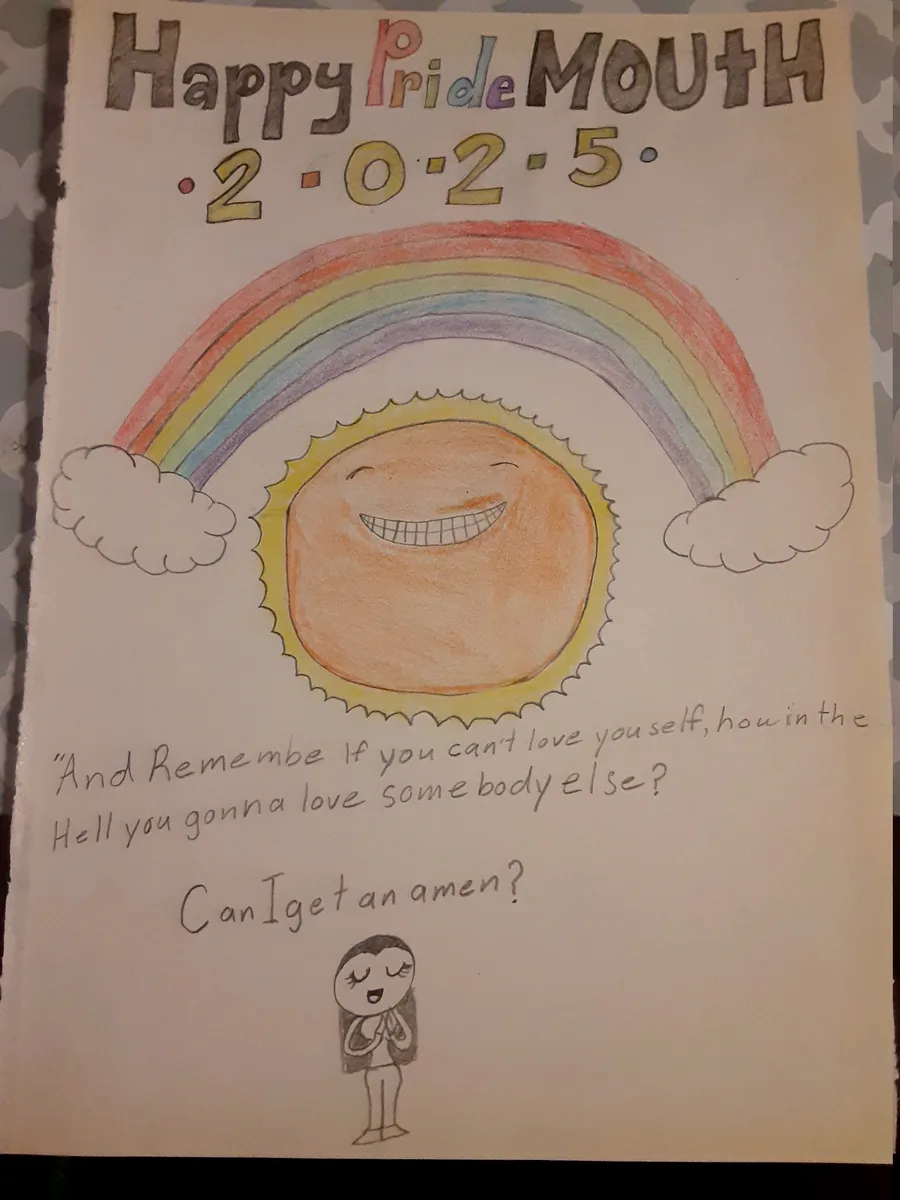 Happy Pride MOUtH
• 2 ▪ 0 ▪ 2 ▪ 5 •
"And Remembe If you can't love youself, how in the
Hell you gonna love somebody else?
Can I get an amen?